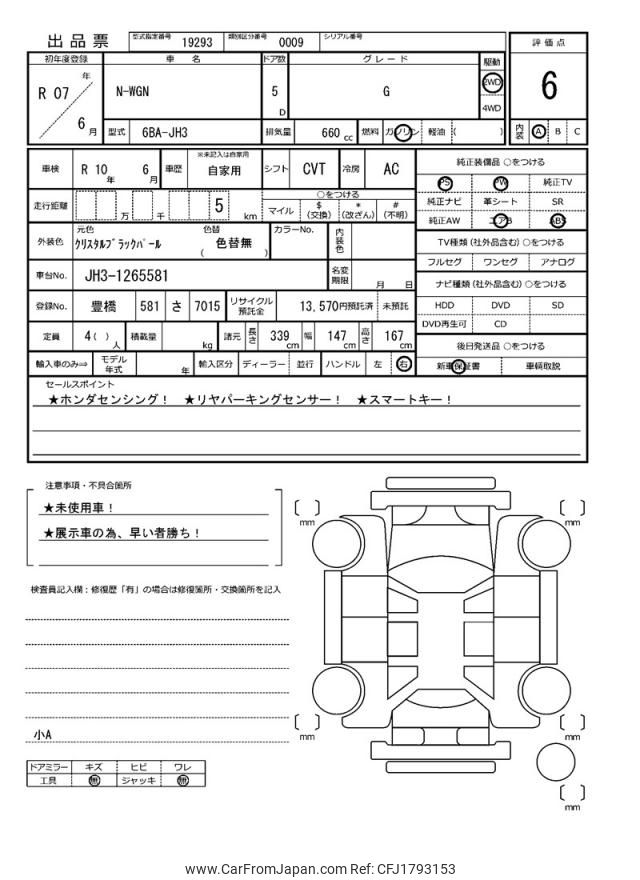 出品票 型式指定番号 19293 類別区分番号 0009 シリアル番号
評価点
初年度登録 車名 ドア数 グレード 駆動
R 07 年 6 月 N-WGN 5 D G 2WD 4WD
6
型式 6BA-JH3 排気量 660 cc 燃料 ガソリン 軽油 ( )
内装 A B C
車検 R 10 年 6 月 車歴 ※未記入は自家用 自家用 シフト CVT 冷房 AC
純正装備品 ○をつける
PS PW 純正TV
純正ナビ 革シート SR
純正AW エアB ABS
走行距離 万 千 5 km
○をつける
マイル $ (交換) * (改ざん) # (不明)
外装色 元色 クリスタルブラックパール 色替 ( 色替無 ) カラーNo. 内装色
TV種類 (社外品含む) ○をつける
フルセグ ワンセグ アナログ
車台No. JH3-1265581 名変期限 月 日
ナビ種類 (社外品含む) ○をつける
登録No. 豊橋 581 さ 7015 リサイクル預託金 13,570円預託済 未預託
HDD DVD SD
DVD再生可 CD
定員 4 ( ) 人 積載量 kg 諸元 長さ 339 cm 幅 147 cm 高さ 167 cm
後日発送品 ○をつける
輸入車のみ⇒ モデル年式 年 輸入区分 ディーラー 並行 ハンドル 左 右
新車保証書 車輌取説
セールスポイント
★ホンダセンシング！ ★リヤパーキングセンサー！ ★スマートキー！
注意事項・不具合箇所
★未使用車！
★展示車の為、早い者勝ち！
検査員記入欄：修復歴「有」の場合は修復箇所・交換箇所を記入
小A
ドアミラー キズ ヒビ ワレ
工具 無 ジャッキ 無
mm
mm
mm
mm
mm
www.CarFromJapan.com Ref: CFJ1793153